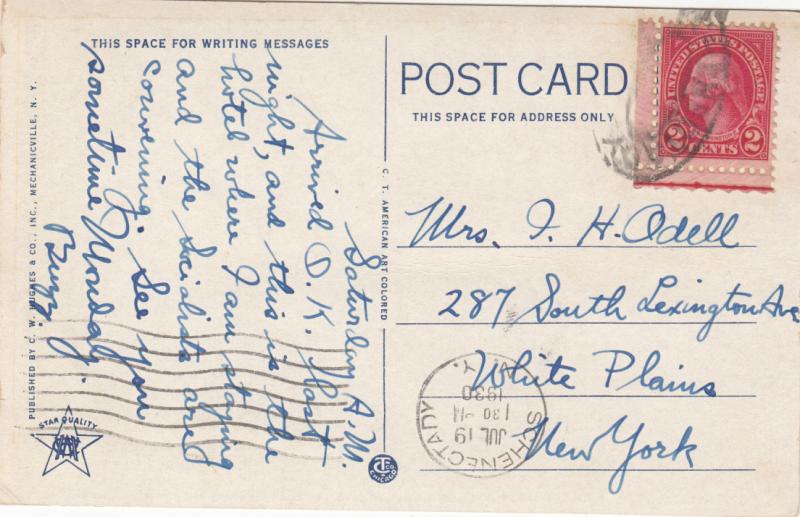 THIS SPACE FOR WRITING MESSAGES
POST CARD
THIS SPACE FOR ADDRESS ONLY
UNITED STATES POSTAGE
2 CENTS 2
Saturday A.M.
Arrived O.K. last
night, and this is the
hotel where I am staying
and the Socialists are
convening. See you
sometime Monday.
Buzz.
Mrs. I. H. Odell
287 South Lexington Ave
White Plains
New York
SCHENECTADY
N.Y.
JUL 19
1 30 PM
1930
PUBLISHED BY C. W. HUGHES & CO., INC., MECHANICVILLE, N. Y.
C. T. AMERICAN ART COLORED
STAR QUALITY
CHICAGO